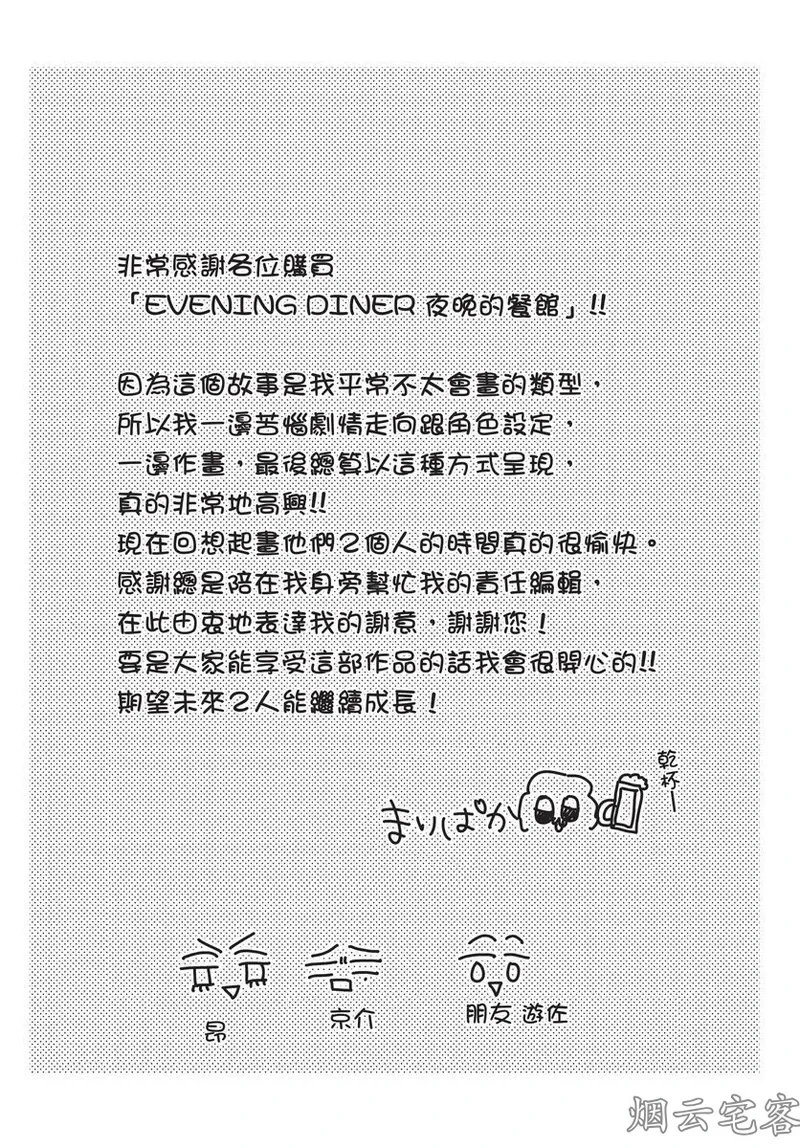 非常感謝各位購買
「EVENING DINER 夜晚的餐館」!!
因為這個故事是我平常不太會畫的類型，
所以我一邊苦惱劇情走向跟角色設定，
一邊作畫，最後總算以這種方式呈現，
真的非常地高興!!
現在回想起畫他們2個人的時間真的很愉快。
感謝總是陪在我身旁幫忙我的責任編輯，
在此由衷地表達我的謝意，謝謝您！
要是大家能享受這部作品的話我會很開心的!!
期望未來2人能繼續成長！
乾杯ー
まりぱか
昂
京介
朋友 遊佐
烟云宅客